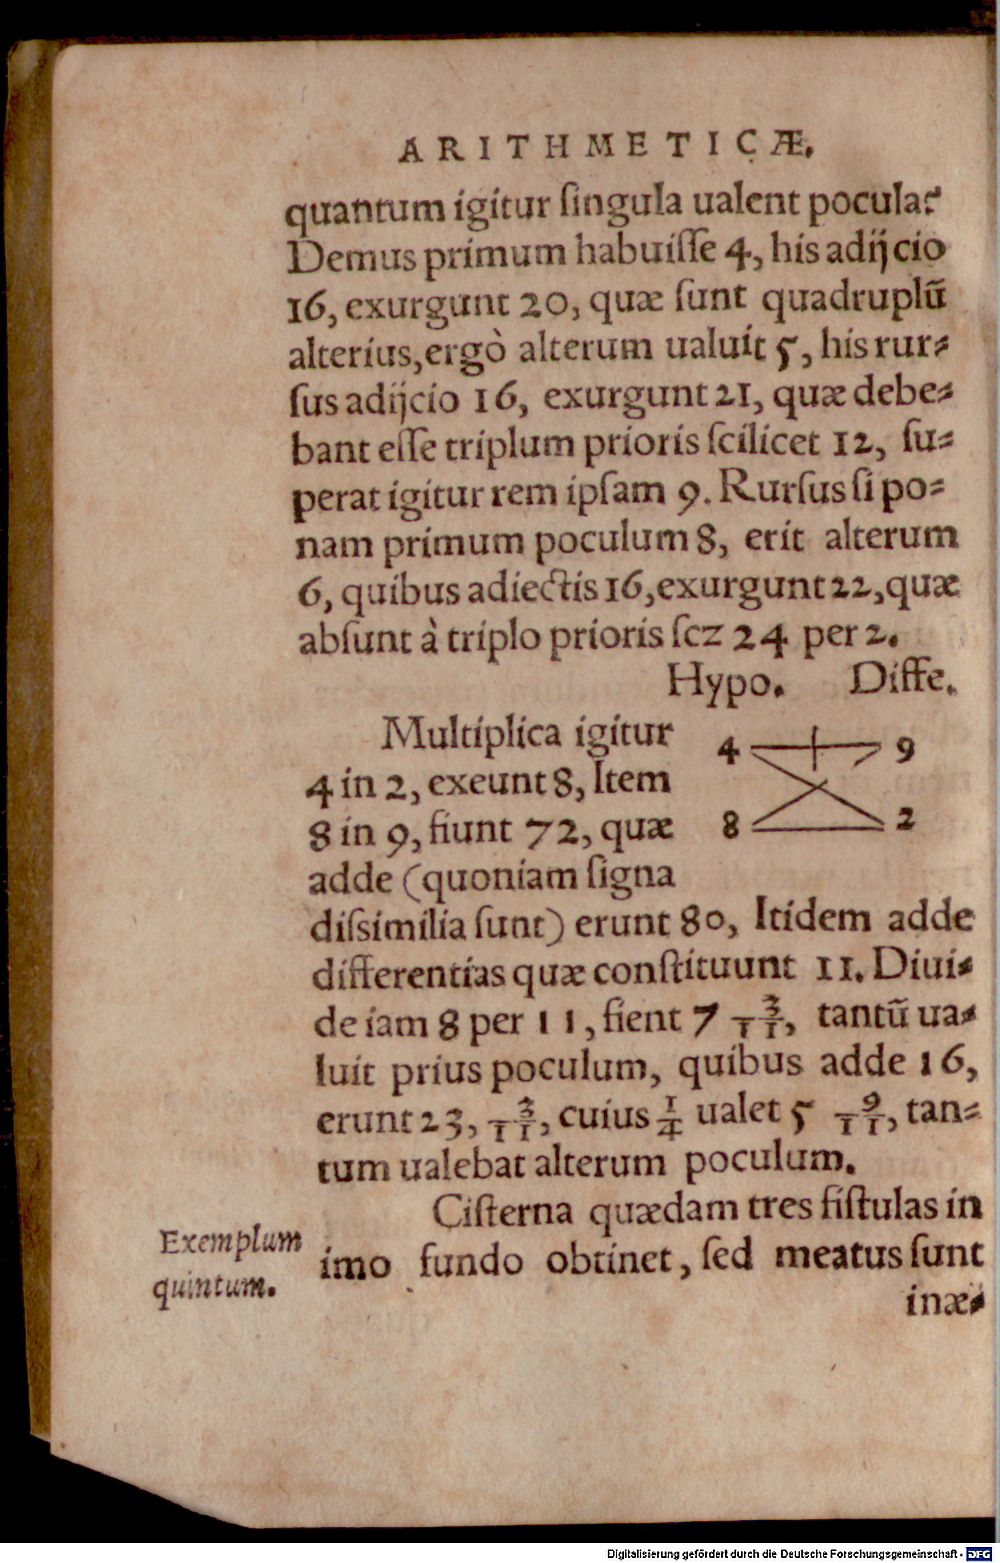 ARITHMETICÆ.
quantum igitur ſingula ualent pocula?
Demus primum habuiſſe 4, his adijcio
16, exurgunt 20, quæ ſunt quadruplũ
alterius, ergò alterum ualuit 5, his rur⸗
ſus adijcio 16, exurgunt 21, quæ debe⸗
bant eſſe triplum prioris ſcilicet 12, ſu⸗
perat igitur rem ipſam 9. Rurſus ſi po⸗
nam primum poculum 8, erit alterum
6, quibus adiectis 16, exurgunt 22, quæ
abſunt à triplo prioris ſcz 24 per 2.
Hypo. Diffe.
Multiplica igitur
4 in 2, exeunt 8, Item
8 in 9, fiunt 72, quæ
adde (quoniam ſigna
4 9
8 2
diſsimilia ſunt) erunt 80, Itidem adde
differentias quæ conſtituunt 11. Diui⸗
de iam 8 per 11, fient 7 3/11, tantũ ua⸗
luit prius poculum, quibus adde 16,
erunt 23, 3/11, cuius 1/4 ualet 5 9/11, tan⸗
tum ualebat alterum poculum.
Ciſterna quædam tres fiſtulas in
Exemplum
quintum.
imo fundo obtinet, ſed meatus ſunt
inæ⸗
Digitalisierung gefördert durch die Deutsche Forschungsgemeinschaft - DFG